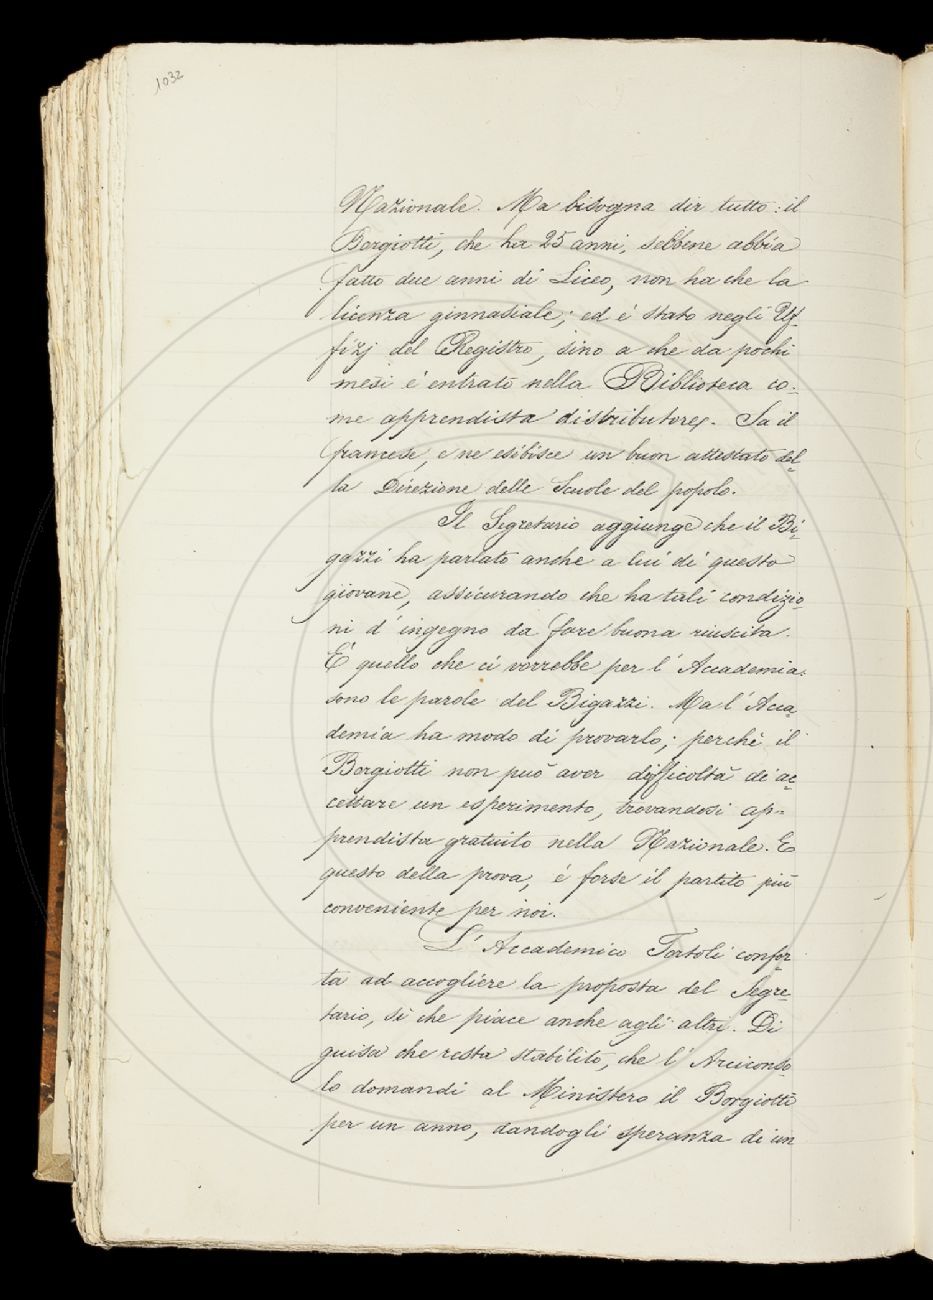 1032
Nazionale. Ma bisogna dir tutto: il
Borgiotti, che ha 25 anni, sebbene abbia
fatto due anni di Liceo, non ha che la
licenza ginnasiale; ed è stato negli Uf-
fizj del Registro, sino a che da pochi
mesi è entrato nella Biblioteca co-
me apprendista distributore. Sa il
francese, e ne esibisce un buon attestato del-
la Direzione delle Scuole del popolo.
Il Segretario aggiunge che il Bi-
gazzi ha parlato anche a lui di questo
giovane, assicurando che ha tali condizio-
ni d'ingegno da fare buona riuscita.
È quello che ci vorrebbe per l'Accademia:
sono le parole del Bigazzi. Ma l'Acca-
demia ha modo di provarlo; perchè il
Borgiotti non può aver difficoltà di ac-
cettare un esperimento, trovandosi ap-
prendista gratuito nella Nazionale. E
questo della prova, è forse il partito più
conveniente per noi.
L'Accademico Tortoli confor-
ta ad accogliere la proposta del Segre-
tario, sì che piace anche agli altri. Di
guisa che resta stabilito, che l'Arciconso-
lo domandi al Ministero il Borgiotti
per un anno, dandogli speranza di un